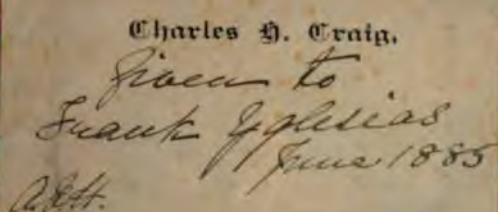 Charles H. Craig.
Given to
Frank Yglesias
June 1885